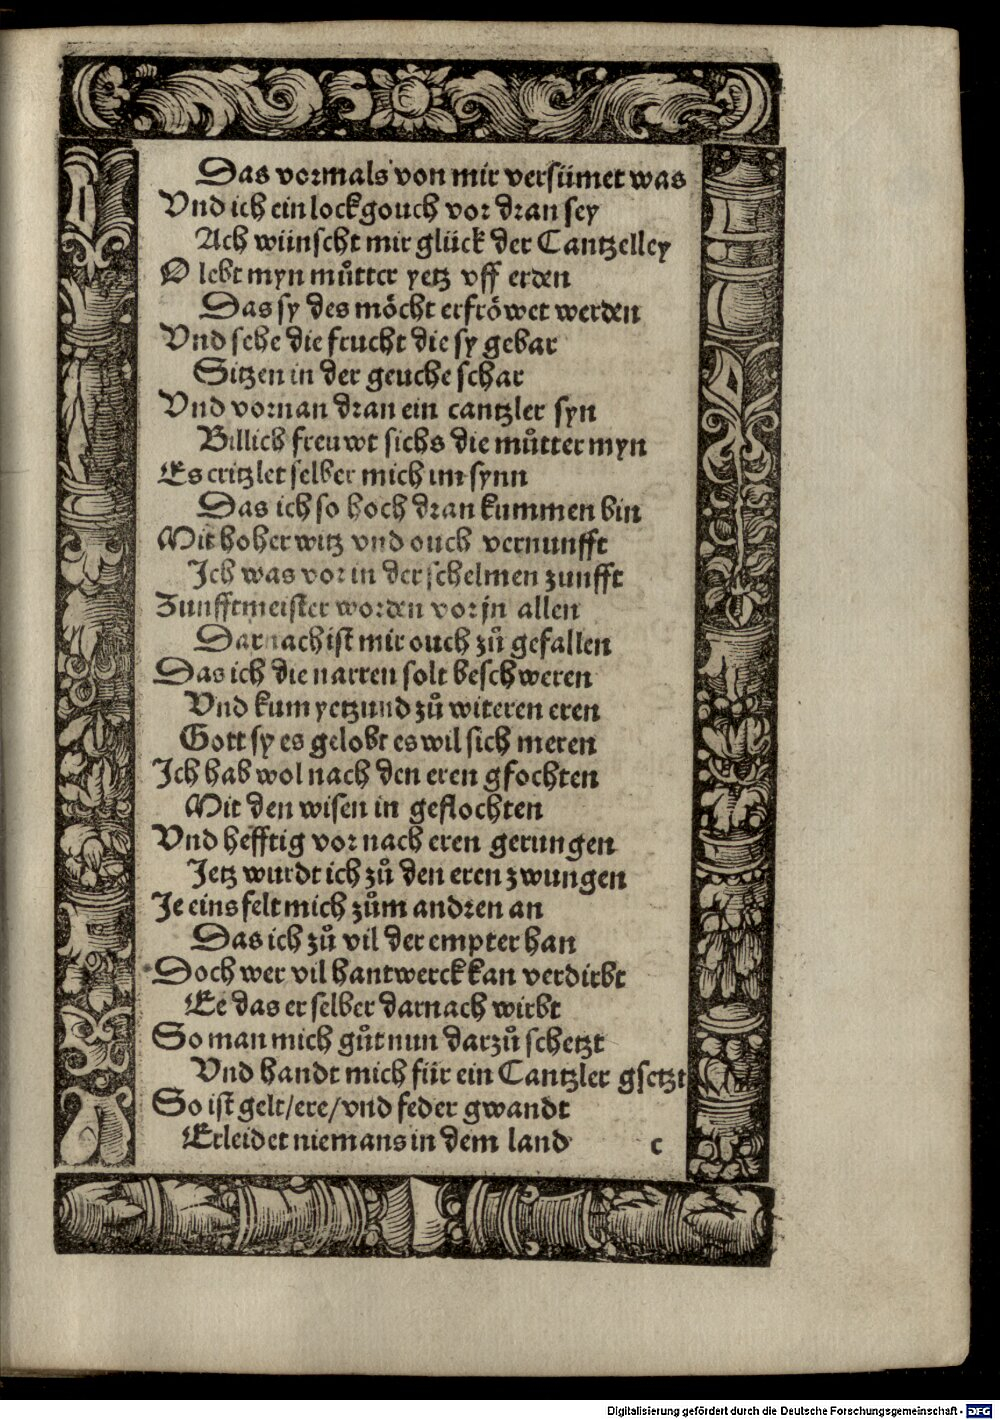 Das vormals von mir versümet was
Vnd ich ein lockgouch vor dran sey
Ach wünscht mir glück der Cantzelley
O lebt myn můtter yetz vff erden
Das sy des möcht erfröwet werden
Vnd sehe die frucht die sy gebar
Sitzen in der geuche schar
Vnd vornan dran ein cantzler syn
Billich freuwt sichs die můtter myn
Es critzlet selber mich im synn
Das ich so hoch dran kummen bin
Mit hoher witz vnd ouch vernunfft
Ich was vor in der schelmen zunfft
Zunfftmeister worden vor jn allen
Darnach ist mir ouch zů gefallen
Das ich die narren solt beschweren
Vnd kum yetzund zů witeren eren
Gott sy es gelobt es wil sich meren
Ich hab wol nach den eren gfochten
Mit den wisen in geflochten
Vnd hefftig vor nach eren gerungen
Jetz wurdt ich zů den eren zwungen
Je eins felt mich zům andren an
Das ich zů vil der empter han
Doch wer vil hantwerck kan verdirbt
Ee das er selber darnach wirbt
So man mich gůt nun darzů schetzt
Vnd handt mich für ein Cantzler gsetzt
So ist gelt/ere/vnd feder gwandt
Erleidet niemans in dem land c
Digitalisierung gefördert durch die Deutsche Forschungsgemeinschaft - DFG